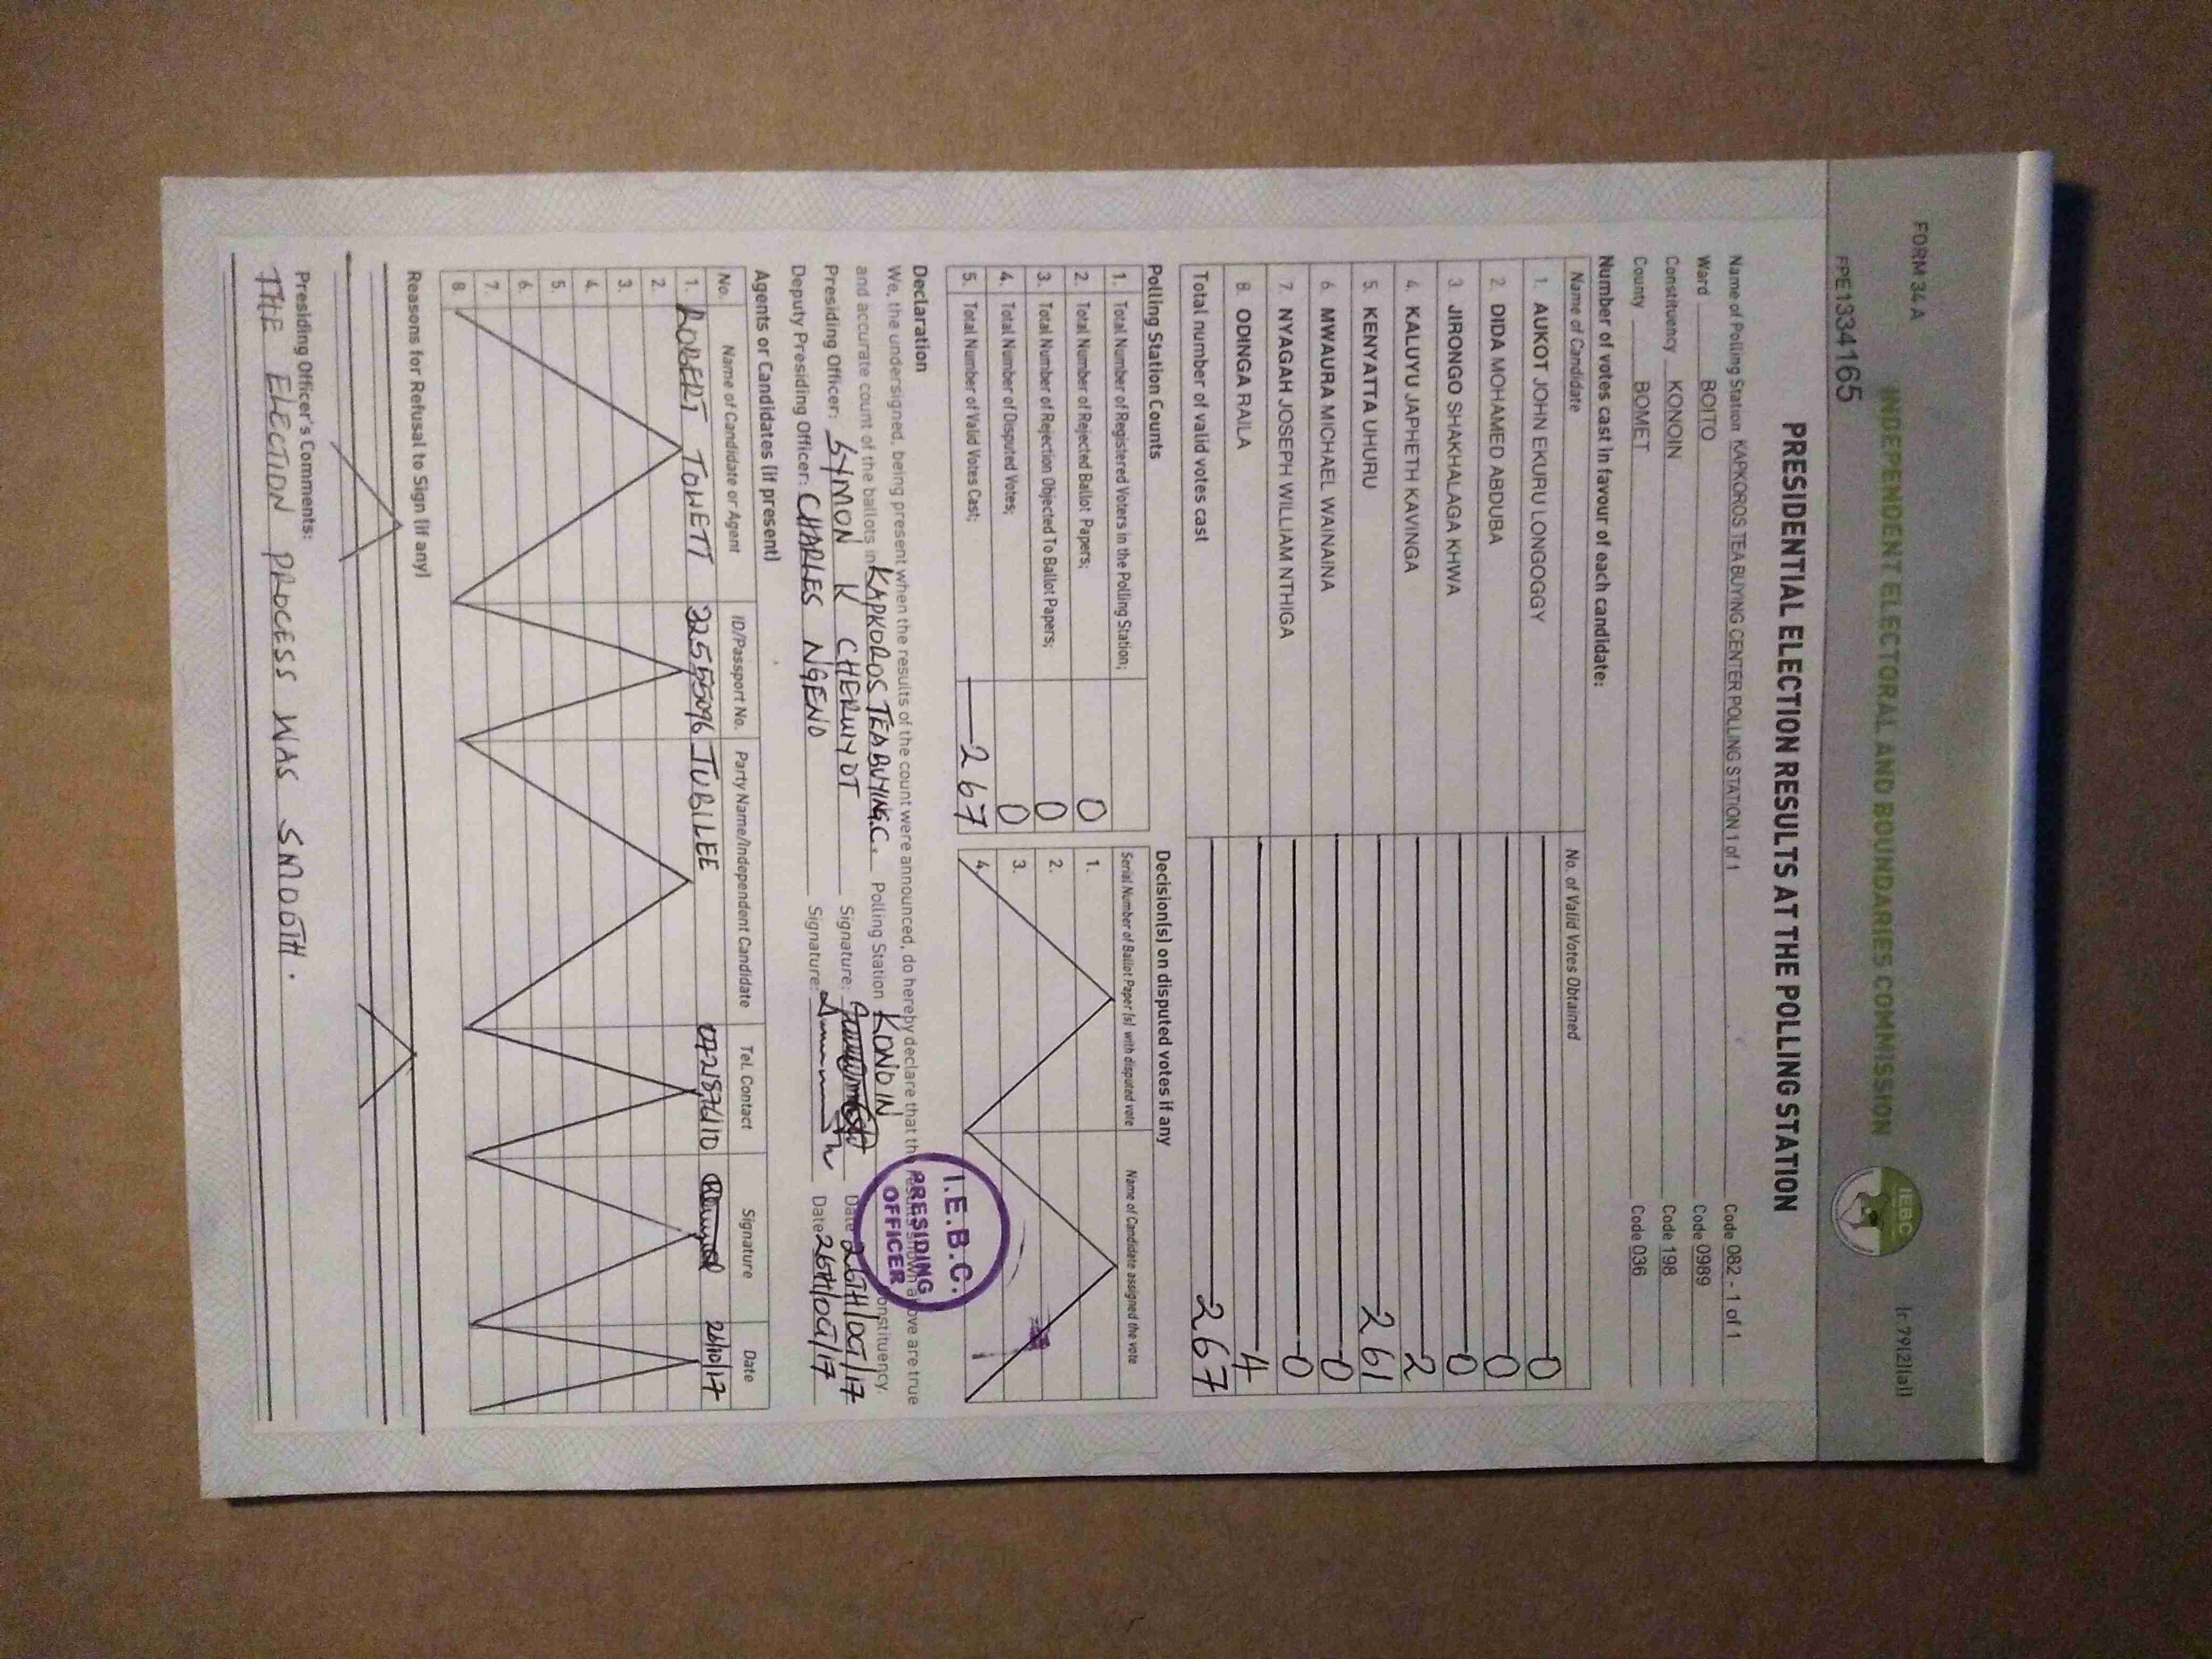 FORM 34A
(r.79(2)(a))
INDEPENDENT ELECTORAL AND BOUNDARIES COMMISSION
IEBC
FPE1334165
PRESIDENTIAL ELECTION RESULTS AT THE POLLING STATION
Name of Polling Station KAPKOROS TEA BUYING CENTER POLLING STATION 1 of 1 Code 082 - 1 of 1
Ward BOITO Code 0989
Constituency KONOIN Code 198
County BOMET Code 036
Number of votes cast in favour of each candidate:
Name of Candidate No. of Valid Votes Obtained
1. AUKOT JOHN EKURU LONGOGGY 0
2. DIDA MOHAMED ABDUBA 0
3. JIRONGO SHAKHALAGA KHWA 0
4. KALUYU JAPHETH KAVINGA 2
5. KENYATTA UHURU 261
6. MWAURA MICHAEL WAINAINA 0
7. NYAGAH JOSEPH WILLIAM NTHIGA 0
8. ODINGA RAILA 4
Total number of valid votes cast 267
Polling Station Counts
1. Total Number of Registered Voters in the Polling Station;
2. Total Number of Rejected Ballot Papers; 0
3. Total Number of Rejection Objected To Ballot Papers; 0
4. Total Number of Disputed Votes; 0
5. Total Number of Valid Votes Cast; 267
Decision(s) on disputed votes if any
Serial Number of Ballot Paper (s) with disputed vote Name of Candidate assigned the vote
1.
2.
3.
4.
Declaration
We, the undersigned, being present when the results of the count were announced, do hereby declare that the results shown above are true
and accurate count of the ballots in KAPKOROS TEA BUYING.C. Polling Station KONOIN Constituency.
Presiding Officer: SYMON K CHERUIYOT Signature: Date 26TH/OCT/17
Deputy Presiding Officer: CHARLES NGENO Signature: Date 26TH/OCT/17
I.E.B.C.
PRESIDING
OFFICER
Agents or Candidates (if present)
No. Name of Candidate or Agent ID/Passport No. Party Name/Independent Candidate Tel. Contact Signature Date
1. ROBERT TOWETT 32555096 TUBILEE 26/10/17
2.
3.
4.
5.
6.
7.
8.
Reasons for Refusal to Sign (if any)
Presiding Officer's Comments:
THE ELECTION PROCESS WAS SMOOTH.